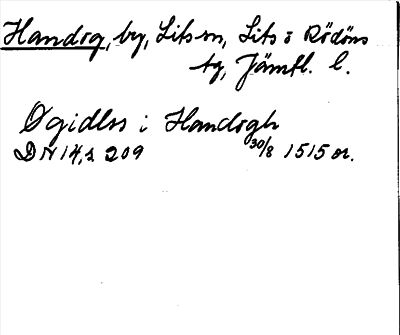 Handog, by, Lits sn, Lits o Rödöns
tg, Jämtl. l.
Øgidlss i Handogh
DN 14, s 209 30/8 1515 or.